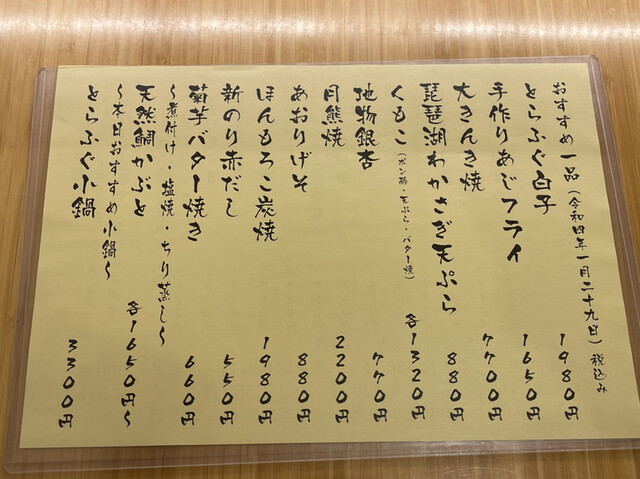 おすすめ一品(令和四年一月二十九日)税込み
とらふぐ白子 1980円
手作りあじフライ 1650円
大きんき焼 7700円
琵琶湖わかさぎ天ぷら 880円
くもこ(ポン酢・天ぷら・バター焼) 各1320円
地物銀杏 770円
月熊焼 2200円
あおりげそ 880円
ほんもろこ炭焼 1980円
新のり赤だし 550円
菊芋バター焼き 660円
〜煮付け・塩焼・ちり蒸し〜
天然鯛かぶと 各1650円〜
〜本日おすすめ小鍋〜
とらふぐ小鍋 3300円